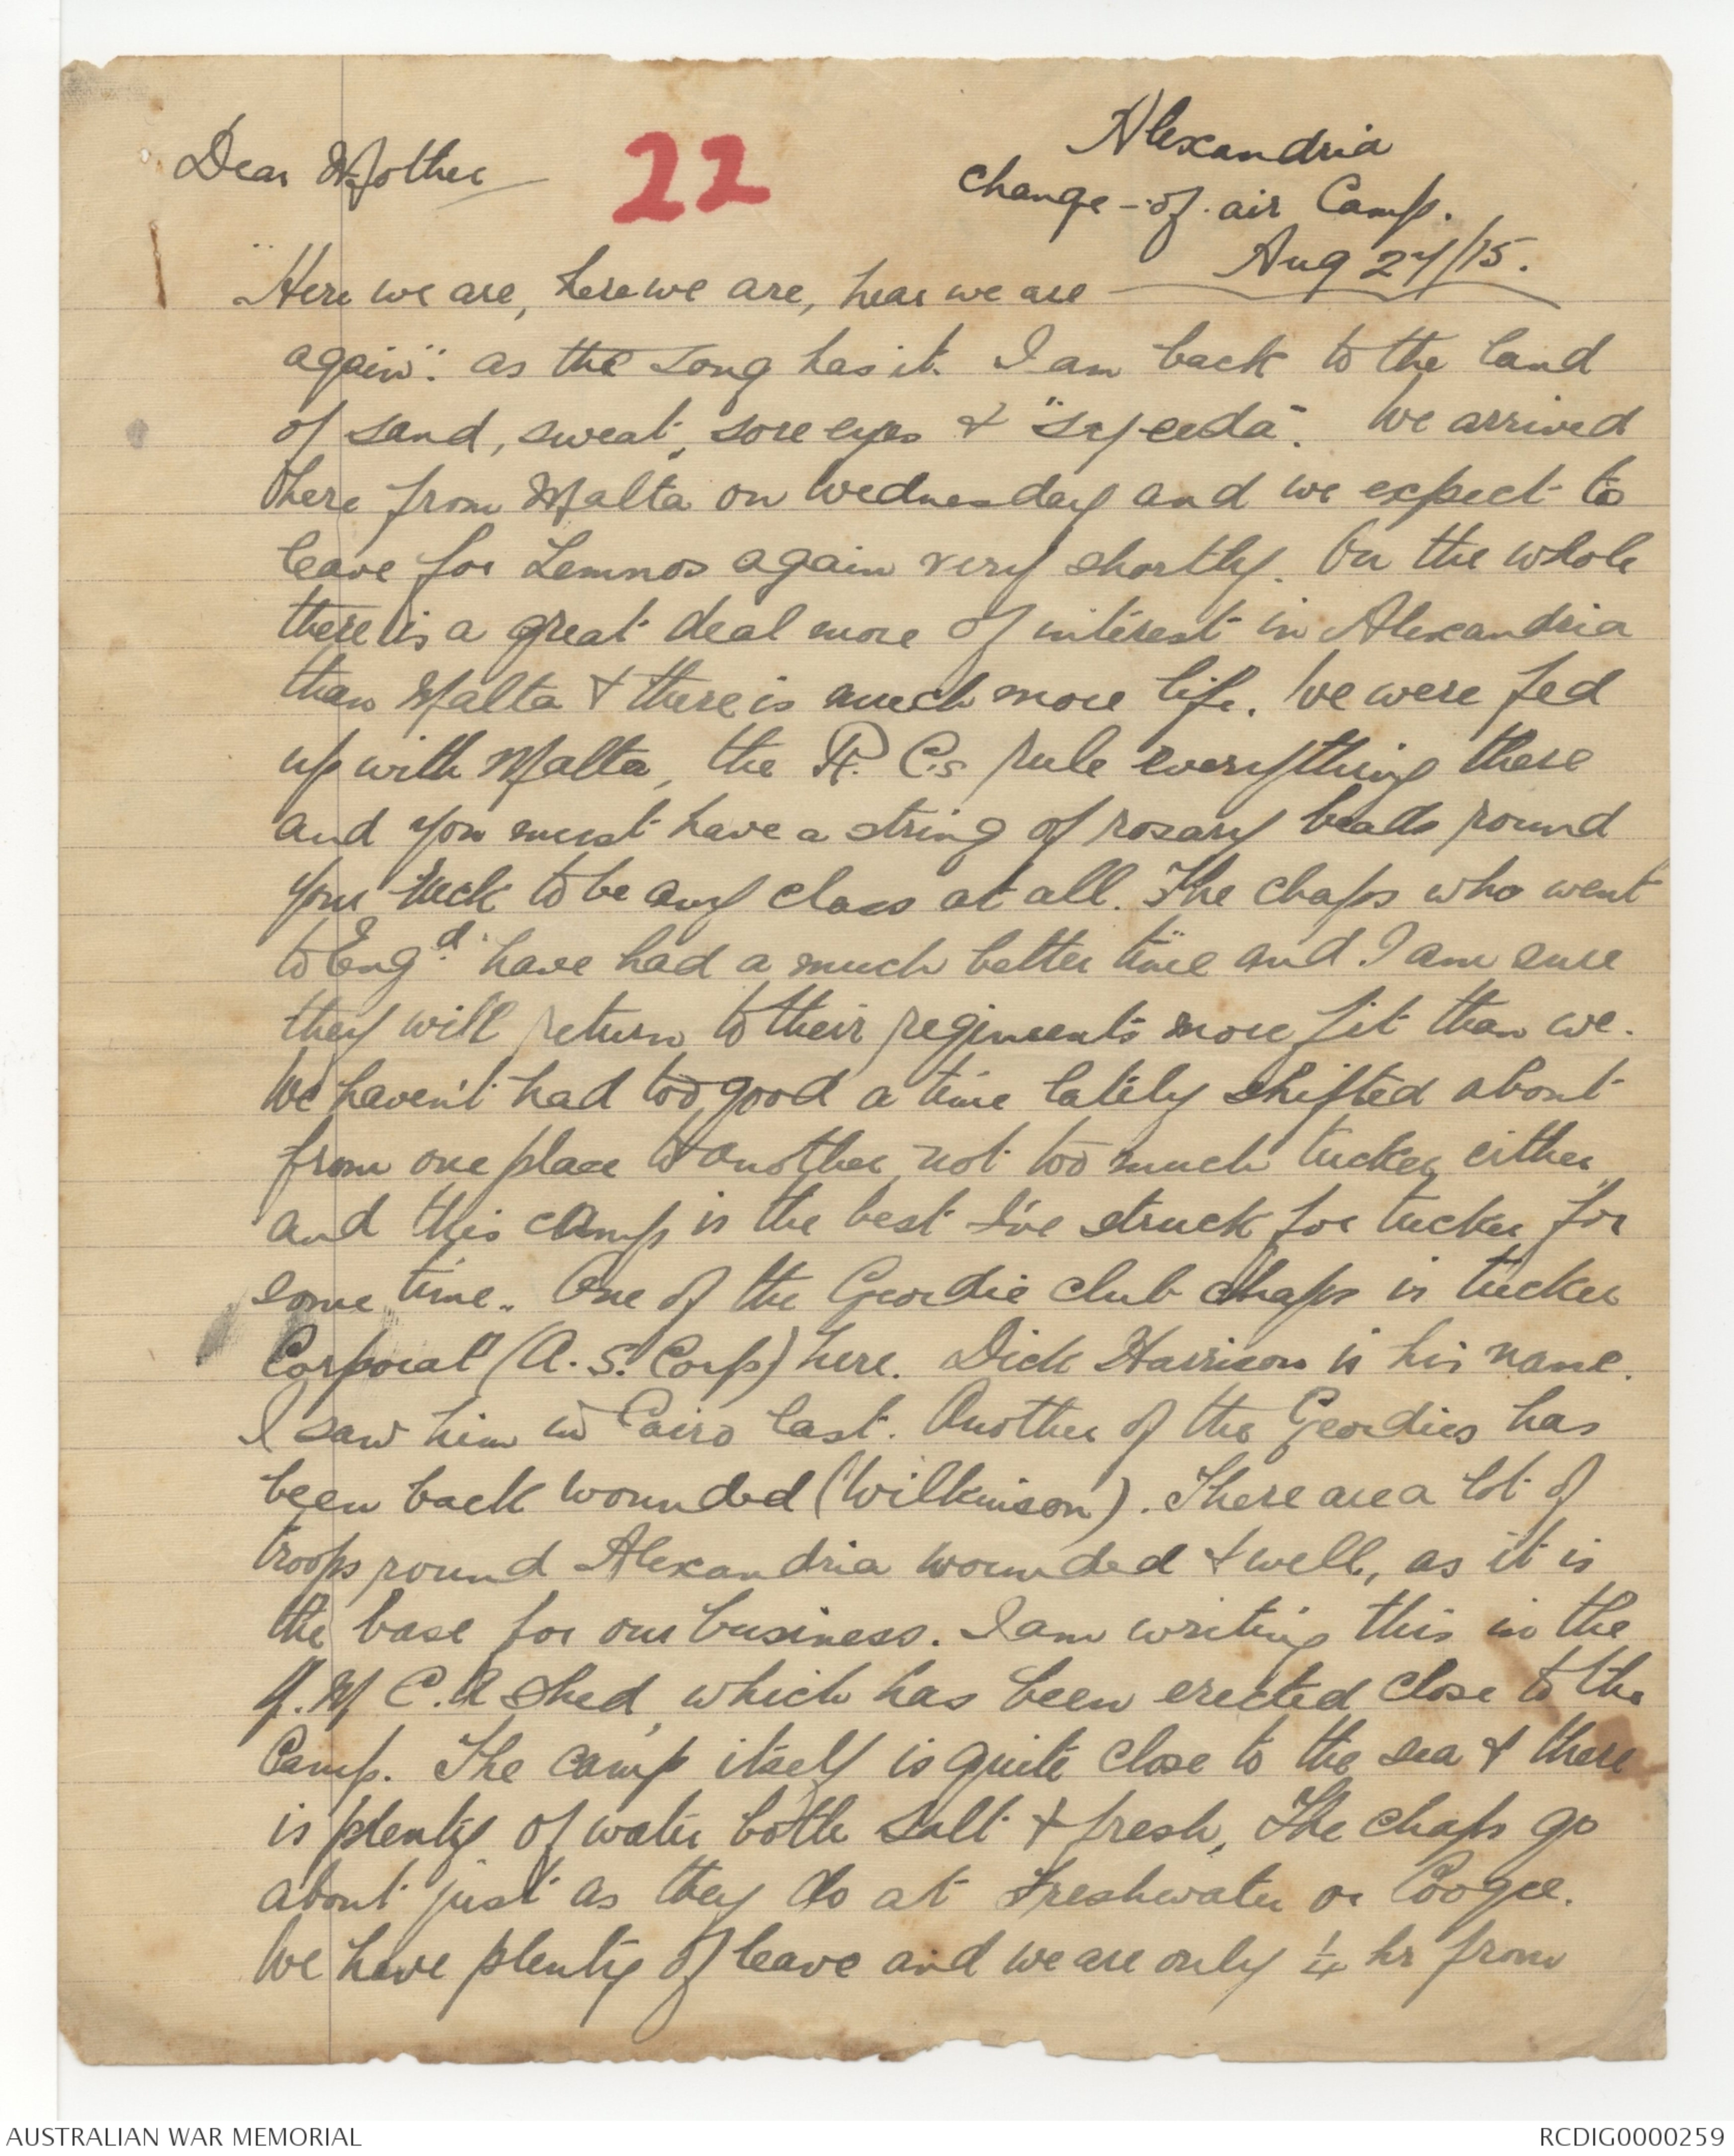 Alexandria
Dear Mother 22 Change-of-air Camp.
Aug 27/15.
"Here we are, here we are, hear we are
again". as the song has it. I am back to the land
of sand, sweat, sore eyes & "sayeeda". We arrived
here from Malta on Wednesday and we expect to
leave for Lemnos again very shortly. On the whole
there is a great deal more of interest in Alexandria
than Malta & there is much more life. We were fed
up with Malta, the R. C.s rule everything there
and you must have a string of rosary beads round
your neck to be any class at all. The chaps who went
to Engd. have had a much better time and I am sure
they will return to their regiments more fit than we.
We haven't had too good a time lately shifted about
from one place to another, not too much tucker either,
and this camp is the best I've struck for tucker for
some time. One of the Geordie club chaps is tucker
Corporal (A. S. Corp) here. Dick Harrison is his name.
I saw him in Cairo last. Another of the Geordies has
been back wounded (Wilkinson). There are a lot of
troops round Alexandria wounded & well, as it is
the base for our business. I am writing this in the
Y. M C. A shed, which has been erected close to the
Camp. The camp itself is quite close to the sea & there
is plenty of water both salt & fresh, The chaps go
about just as they do at Freshwater or Coogee.
We have plenty of leave and we are only ¼ hr from
AUSTRALIAN WAR MEMORIAL RCDIG0000259